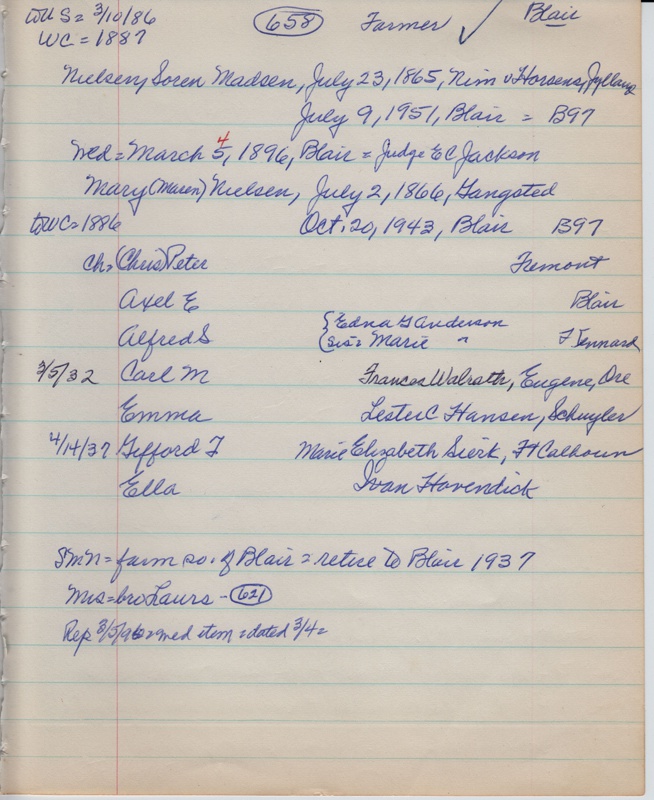 toUS = 3/10/86 658 Farmer ✓ Blair
WC = 1887
Nielsen, Soren Madsen, July 23, 1865, Nim v Horsens, Jylland
July 9, 1951, Blair = B97
Wed = March 5, 1896, Blair = Judge E C Jackson
4
Mary (Maren) Nielsen, July 2, 1866, Gangsted
toWC = 1886 Oct. 20, 1943, Blair B97
Ch = (Chris) Peter Fremont
Axel E Blair
Alfred S { Edna G Anderson
(Sis = Marie " ) F Kennard
3/5/32 Carl M Frances Walrath, Eugene, Ore
Emma Lester C Hansen, Schuyler
4/14/37 Gifford T Marie Elizabeth Sierk, Ft Calhoun
Ella Ivan Hovendick
SMN = farm so. of Blair = retire to Blair 1937
Mrs = bro Laurs - 621
Rep 3/5/96 = wed item = dated 3/4 =